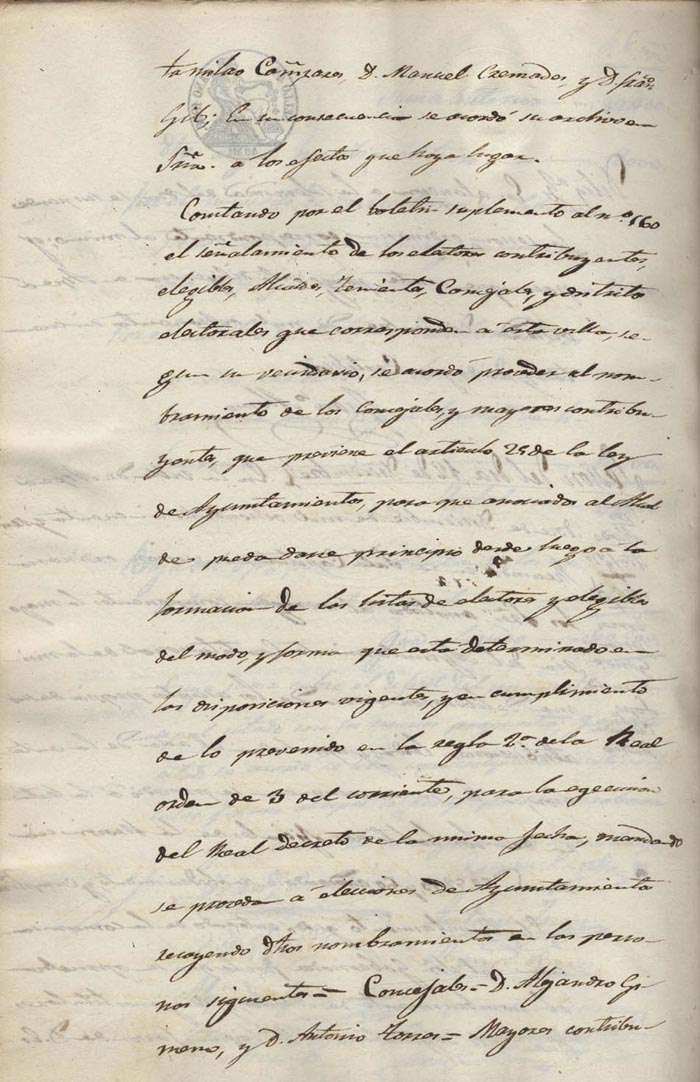 tanilao Cañizares, D. Manuel Cremades, y D. Fran.co
Gil; En su consecuencia se acordó su archivo en
Sria. a los efectos que haya lugar.
Constando por el boletin suplemento al n.o 160
el señalamiento de los electores contribuyentes,
elegibles, Alcaldes, Tenientes, Concejales, y distritos
electorales que corresponden a esta villa, se-
gun su vecindario, se acordó proceder al nom-
bramiento de los concejales, y mayores contribu-
yentes, que previene el articulo 25 de la ley
de Ayuntamientos, para que asociados al Alcal
de pueda darse principio desde luego a la
formacion de las listas de electores y elegibles
del modo, y forma que esta determinado en
las disposiciones vigentes, y en cumplimiento
de lo prevenido en la regla 2.a de la Real
orden de 3 del corriente, para la egecucion
del Real decreto de la misma fecha, mandando
se proceda á elecciones de Ayuntamiento
recayendo dhos nombramientos en las perso-
nas siguientes = Concejales = D. Alejandro Gi-
meno, y D. Antonio Torres = Mayores contribu-